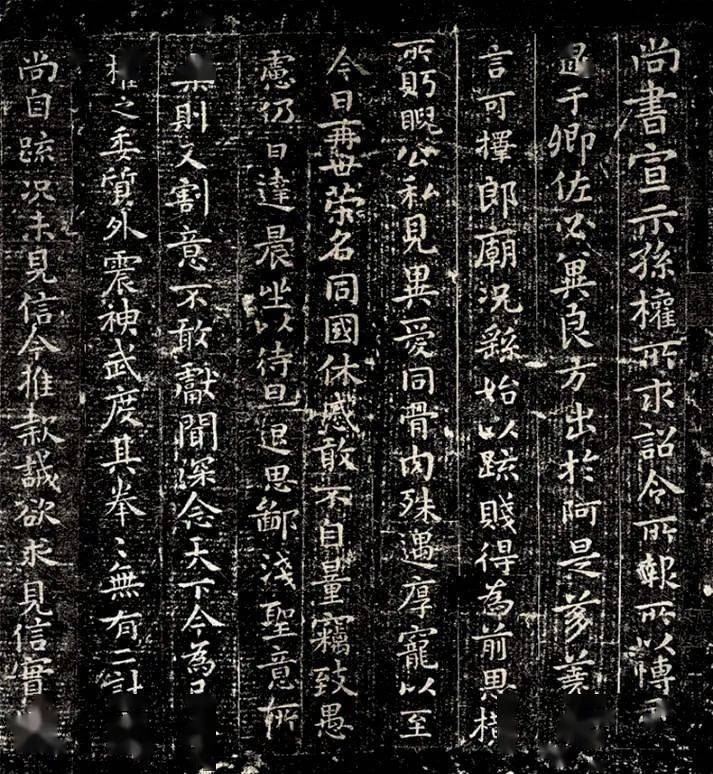 尚書宣示孫權所求詔令所報所以博
逮于卿佐必冀良方出於阿是芻蕘
言可擇郎廟況繇始以疏賤得為前恩橫
所盻睨公私見異愛同骨肉殊遇厚寵以至
今日再世榮名同國休慼敢不自量竊致愚
慮仍日達晨坐以待旦退思鄙淺聖意所
則又割意不敢獻聞深念天下今為
權之委質外震神武度其拳々無有二計
尚自疏況未見信今推款誠欲求見信實